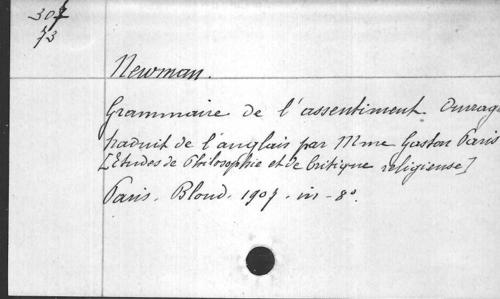 307
73
Newman.
Grammaire de l'assentiment. Ouvrag
traduit de l'anglais par Mme Gaston Paris
[Etudes de Philosophie et de Critique religieuse]
Paris. Bloud. 1907. in-8°.